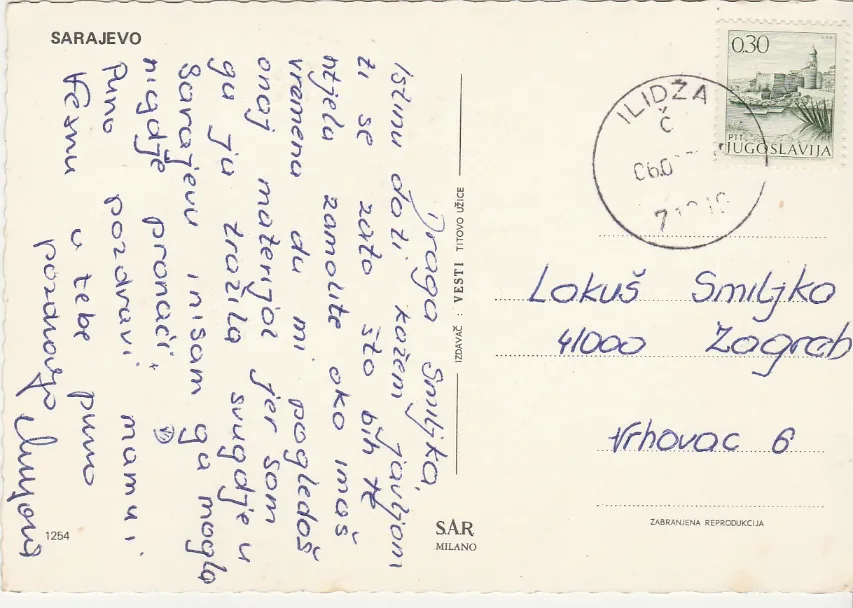 SARAJEVO
Draga Smiljko,
Istinu doti kažem javljam
ti se zato što bih te
htjela zamolite oko imaš
vremena da mi pogledoš
onaj materijal jer sam
ga ja tražila svugdje u
Sarajevu inisam ga mogla
nigdje pronaći.
Puno pozdravi mamu i
Vesnu a tebe puno
pozdravlja
1254
IZDAVAČ : VESTI TITOVO UŽICE
SAR
MILANO
0,30
PTT
JUGOSLAVIJA
ILIDŽA
Č
Lokuš Smiljko
41000 Zagreb
Vrhovac 6
ZABRANJENA REPRODUKCIJA